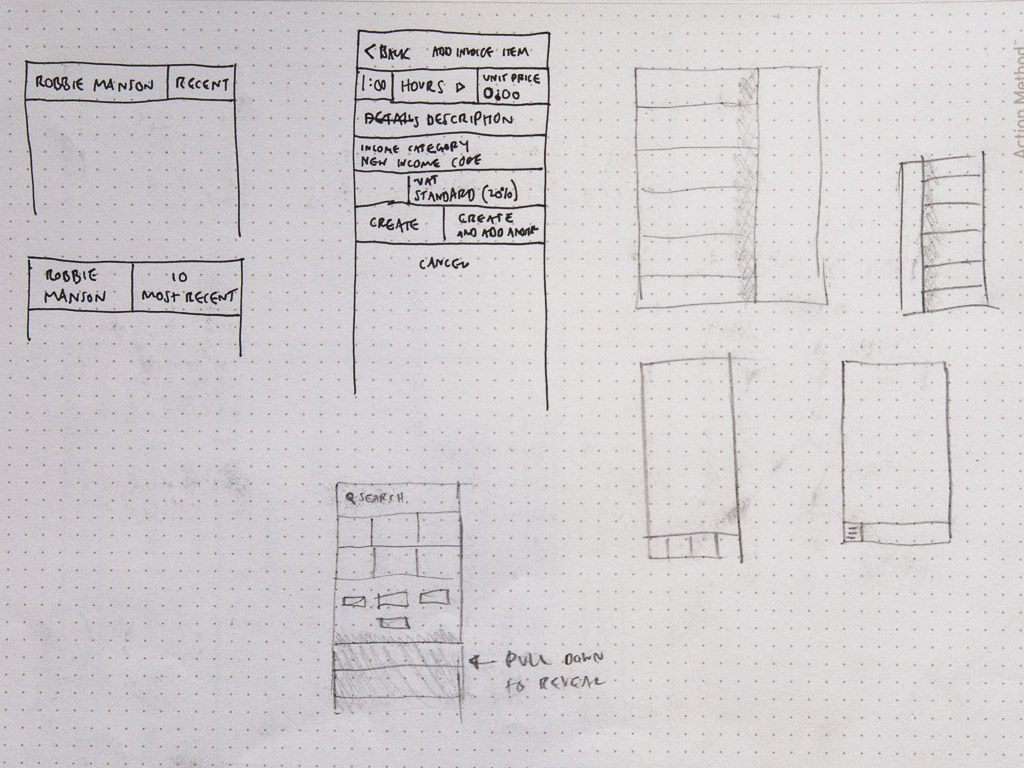 ROBBIE MANSON RECENT
ROBBIE
MANSON
10
MOST RECENT
< BACK ADD INVOICE ITEM
1:00 HOURS
UNIT PRICE
0.00
DETAILS DESCRIPTION
INCOME CATEGORY
NEW INCOME CODE
VAT
STANDARD (20%)
CREATE
CREATE
AND ADD ANOTHER
CANCEL
SEARCH
PULL DOWN
TO REVEAL
Action Method